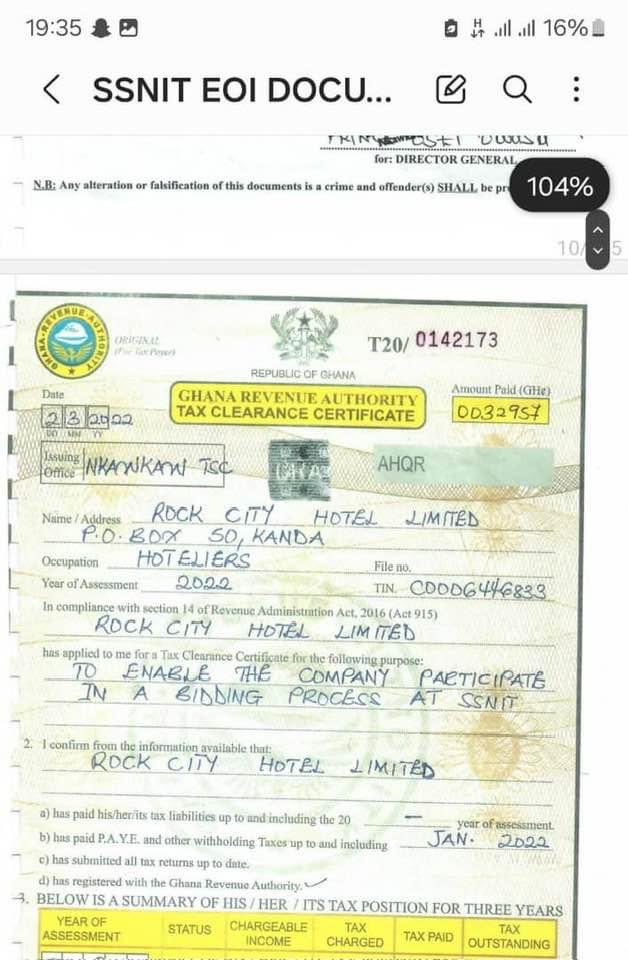 19:35
16%
SSNIT EOI DOCU...
OSEI OWUSU
for: DIRECTOR GENERAL
N.B: Any alteration or falsification of this documents is a crime and offender(s) SHALL be
104%
GHANA REVENUE AUTHORITY
ORIGINAL
(For Tax Payer)
T20/ 0142173
REPUBLIC OF GHANA
Date
23 2022
DD MM YY
GHANA REVENUE AUTHORITY
TAX CLEARANCE CERTIFICATE
Amount Paid (GH¢)
0032957
Issuing Office NKAWKAW TSC
GRA
AHQR
Name / Address ROCK CITY HOTEL LIMITED
P.O. BOX 50, KANDA
Occupation HOTELIERS File no.
Year of Assessment 2022 TIN. C0006446833
In compliance with section 14 of Revenue Administration Act, 2016 (Act 915)
ROCK CITY HOTEL LIMITED
has applied to me for a Tax Clearance Certificate for the following purpose:
TO ENABLE THE COMPANY PARTICIPATE
IN A BIDDING PROCESS AT SSNIT
2. I confirm from the information available that:
ROCK CITY HOTEL LIMITED
a) has paid his/her/its tax liabilities up to and including the 20 — year of assessment.
b) has paid P.A.Y.E. and other withholding Taxes up to and including JAN. 2022
c) has submitted all tax returns up to date.
d) has registered with the Ghana Revenue Authority.
3. BELOW IS A SUMMARY OF HIS / HER / ITS TAX POSITION FOR THREE YEARS
YEAR OF ASSESSMENT STATUS CHARGEABLE INCOME TAX CHARGED TAX PAID TAX OUTSTANDING